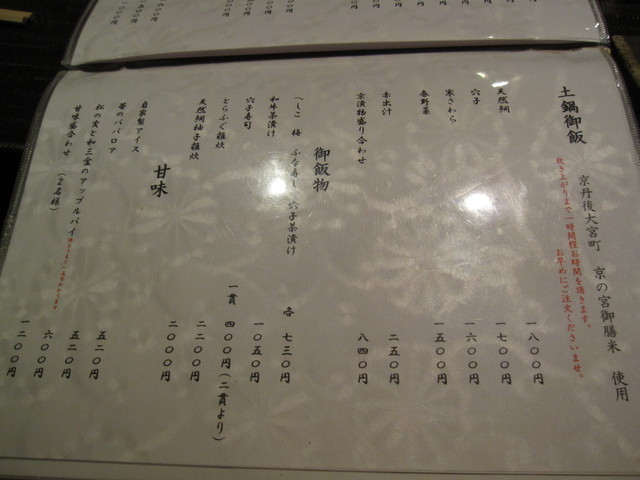 土鍋御飯
京丹後大宮町 京の宮御膳米 使用
炊き上がりまで一時間程お時間を頂きます。
お早めにご注文くださいませ。
天然鯛 一八〇〇円
穴子 一七〇〇円
寒さわら 一六〇〇円
春野菜 一五〇〇円
赤出汁 二五〇円
京漬物盛り合わせ 八四〇円
御飯物
へしこ 梅 ふな寿し 穴子茶漬け 各 七三〇円
和牛茶漬け 一〇五〇円
穴子寿司 一貫 四〇〇円(二貫より)
とらふぐ雑炊 二二〇〇円
天然鯛柚子雑炊 二〇〇〇円
甘味
自家製アイス 五二〇円
苺のババロア 五二〇円
松の実と和三盆のアップルパイ 六〇〇円
甘味盛合わせ(2名様) 一二〇〇円